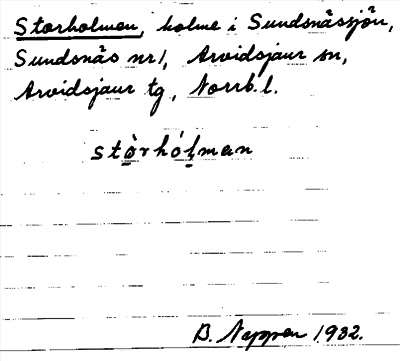 Storholmen, holme i Sundsnässjön,
Sundsnäs nr 1, Arvidsjaur sn,
Arvidsjaur tg, Norrb. l.
stò̲rhól̲man
B. 1932.